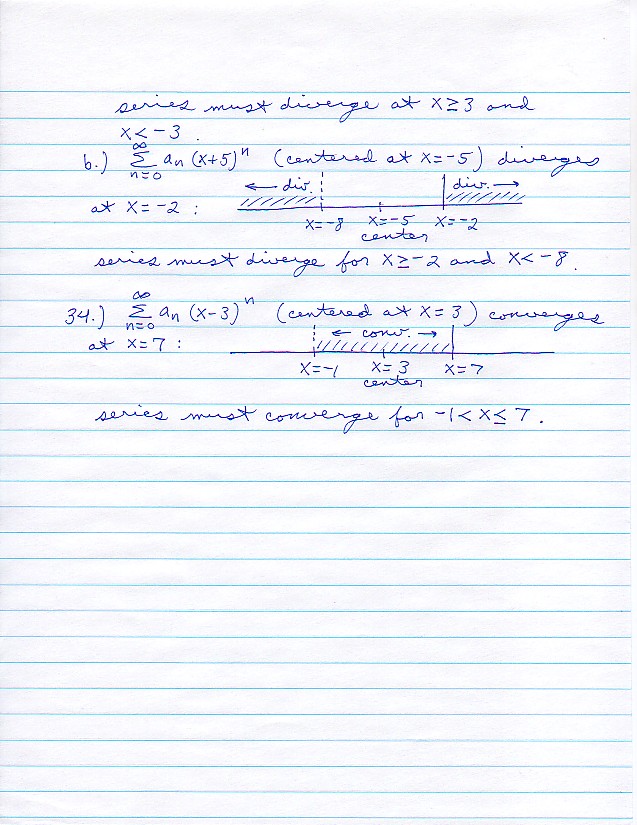 series must diverge at x≥3 and
x<-3.
b.) ∞ Σ n=0 aₙ (x+5)ⁿ (centered at x=-5) diverges
at x=-2 : ← div. div. →
x=-8 x=-5 x=-2
center
series must diverge for x≥-2 and x<-8.
34.) ∞ Σ n=0 aₙ (x-3)ⁿ (centered at x=3) converges
at x=7 : ← conv. →
x=-1 x=3 x=7
center
series must converge for -1<x≤7.